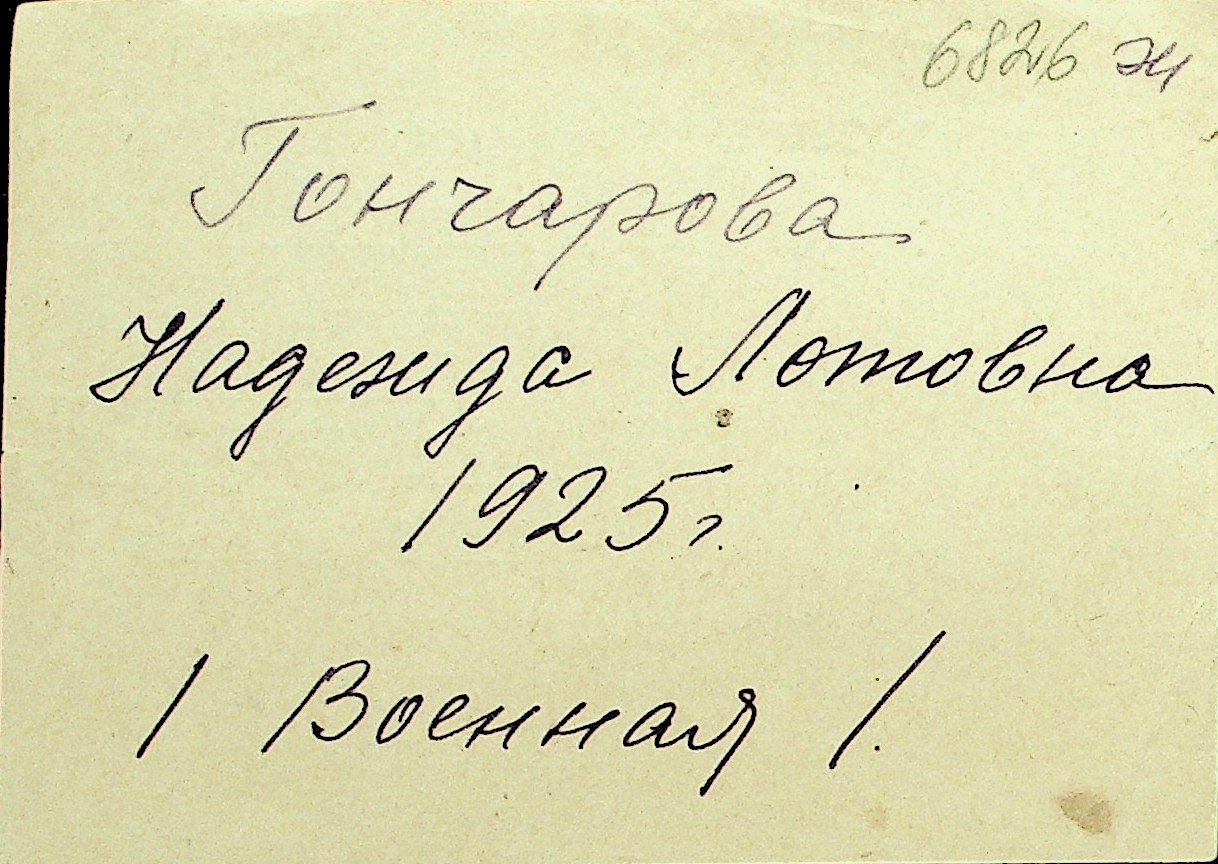 6826 ж
Гончарова
Надежда Лотовна
1925 г.
/ Военная /.